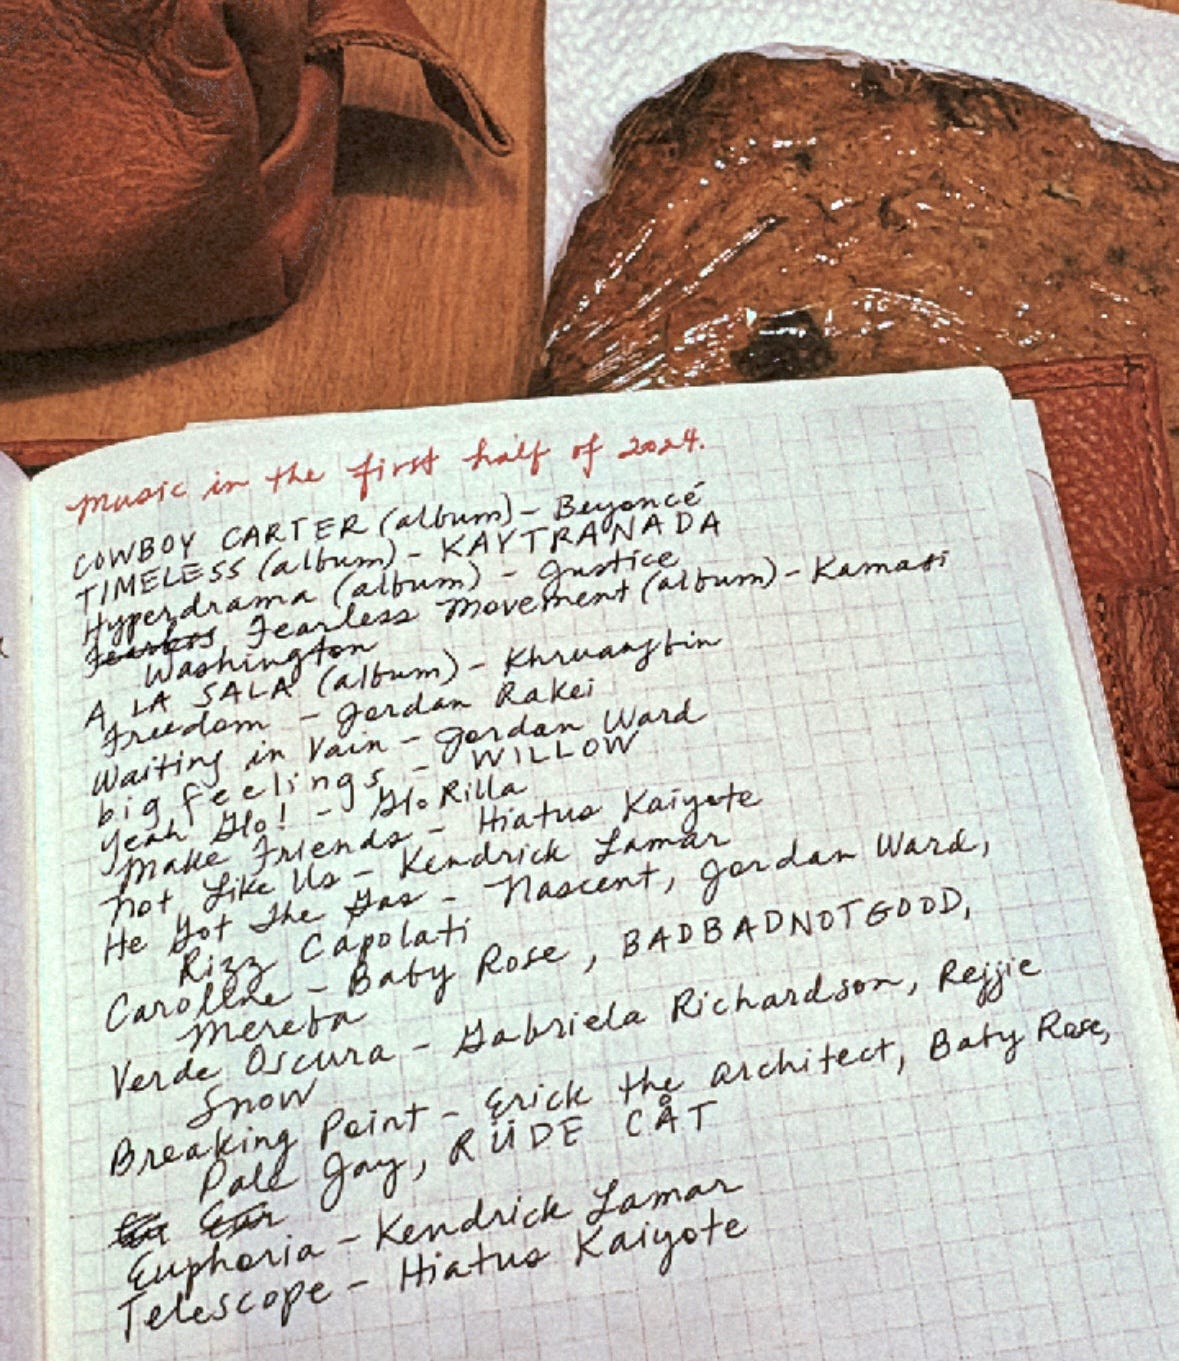 Music in the first half of 2024.
COWBOY CARTER (album) - Beyoncé
TIMELESS (album) - KAYTRANADA
Hyperdrama (album) - Justice
Fearless Fearless Movement (album) - Kamasi
Washington
A LA SALA (album) - Khruangbin
Freedom - Jordan Rakei
Waiting in Vain - Jordan Ward
big feelings - WILLOW
Yeah Glo! - GloRilla
Make Friends - Hiatus Kaiyote
Not Like Us - Kendrick Lamar
He Got The Gas - Nascent, Jordan Ward,
Rizz Capolati
Caroline - Baby Rose, BADBADNOTGOOD,
Mereba
Verde Oscura - Gabriela Richardson, Rejjie
Snow
Breaking Point - Erick the Architect, Baby Rose,
Pale Jay, RÜDE CÅT
Euphoria - Kendrick Lamar
Telescope - Hiatus Kaiyote